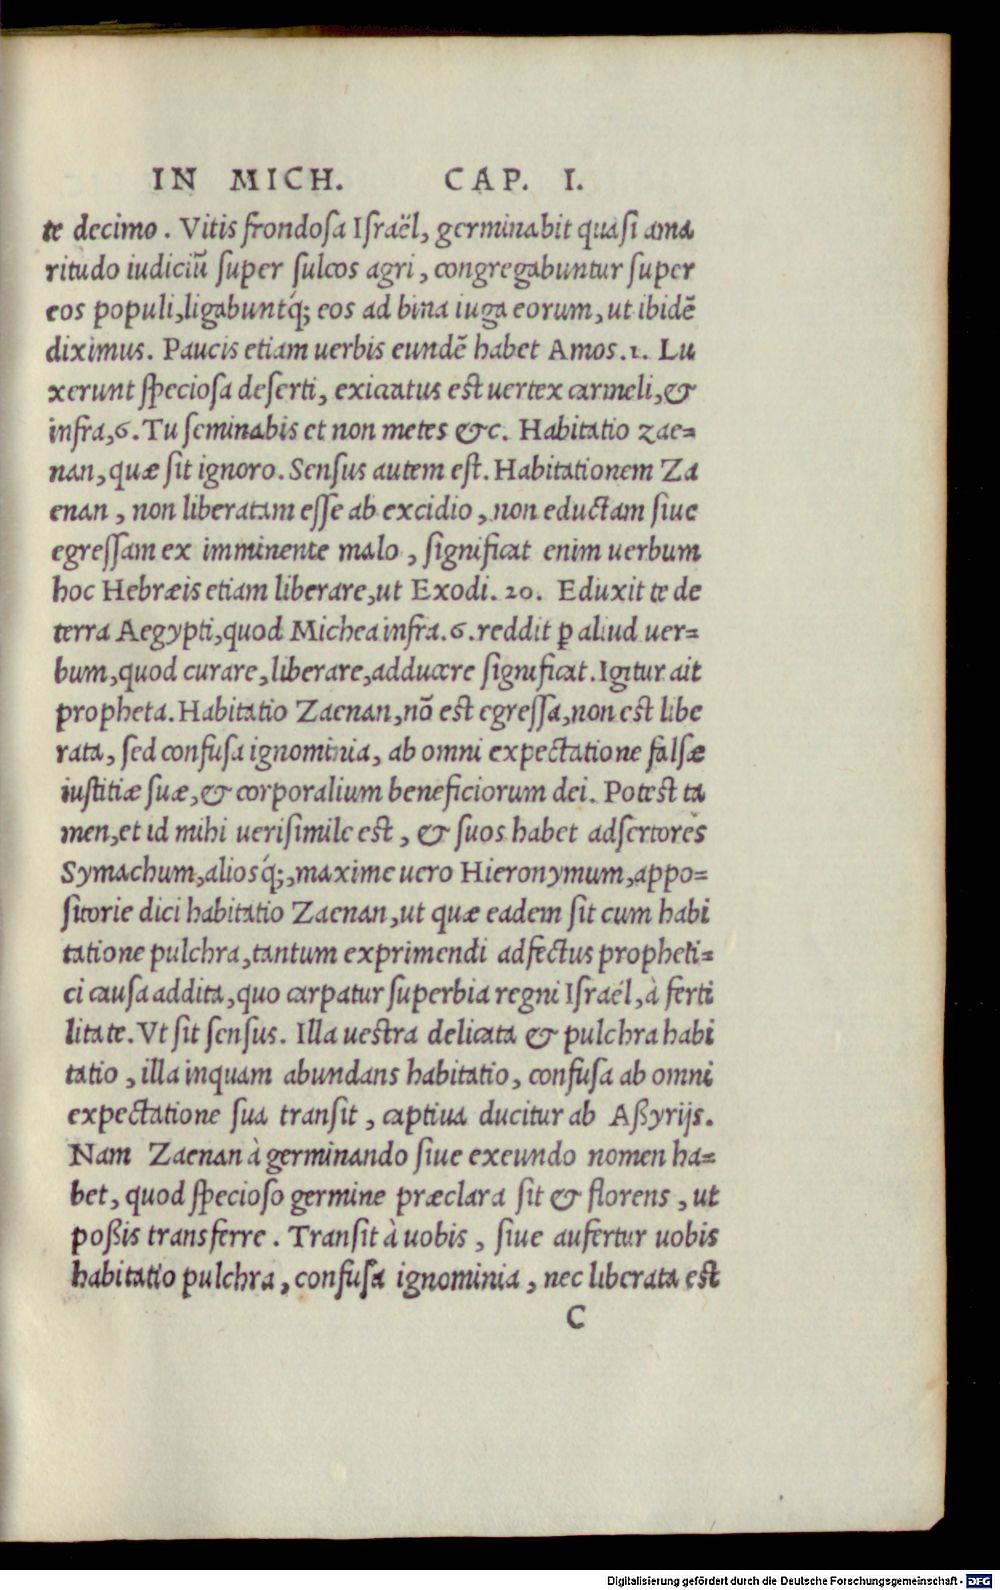 IN MICH. CAP. I.
te decimo. Vitis frondoſa Iſraël, germinabit quaſi ama
ritudo iudiciũ ſuper ſulcos agri, congregabuntur ſuper
eos populi, ligabuntq́; eos ad bina iuga eorum, ut ibidẽ
diximus. Paucis etiam uerbis eundẽ habet Amos. 1. Lu
xerunt ſpecioſa deſerti, exiccatus eſt uertex carmeli, &
infra, 6. Tu ſeminabis et non metes &c. Habitatio zae=
nan, quæ ſit ignoro. Senſus autem eſt. Habitationem Za
enan, non liberatam eſſe ab excidio, non eductam ſiue
egreſſam ex imminente malo, ſignificat enim uerbum
hoc Hebræis etiam liberare, ut Exodi. 20. Eduxit te de
terra Aegypti, quod Michea infra. 6. reddit ꝑ aliud uer=
bum, quod curare, liberare, adducere ſignificat. Igitur ait
propheta. Habitatio Zaenan, nõ eſt egreſſa, non eſt libe
rata, ſed confuſa ignominia, ab omni expectatione falſæ
iuſtitiæ ſuæ, & corporalium beneficiorum dei. Poteſt ta
men, et id mihi ueriſimile eſt, & ſuos habet adſertores
Symachum, aliosq́;, maxime uero Hieronymum, appo=
ſitorie dici habitatio Zaenan, ut quæ eadem ſit cum habi
tatione pulchra, tantum exprimendi adfectus propheti=
ci cauſa addita, quo carpatur ſuperbia regni Iſraël, à ferti
litate. Vt ſit ſenſus. Illa ueſtra delicata & pulchra habi
tatio, illa inquam abundans habitatio, confuſa ab omni
expectatione ſua tranſit, captiua ducitur ab Aßyrijs.
Nam Zaenan à germinando ſiue exeundo nomen ha=
bet, quod ſpecioſo germine præclara ſit & florens, ut
poßis transferre. Tranſit à uobis, ſiue aufertur uobis
habitatio pulchra, confuſa ignominia, nec liberata eſt
C
Digitalisierung gefördert durch die Deutsche Forschungsgemeinschaft - DFG